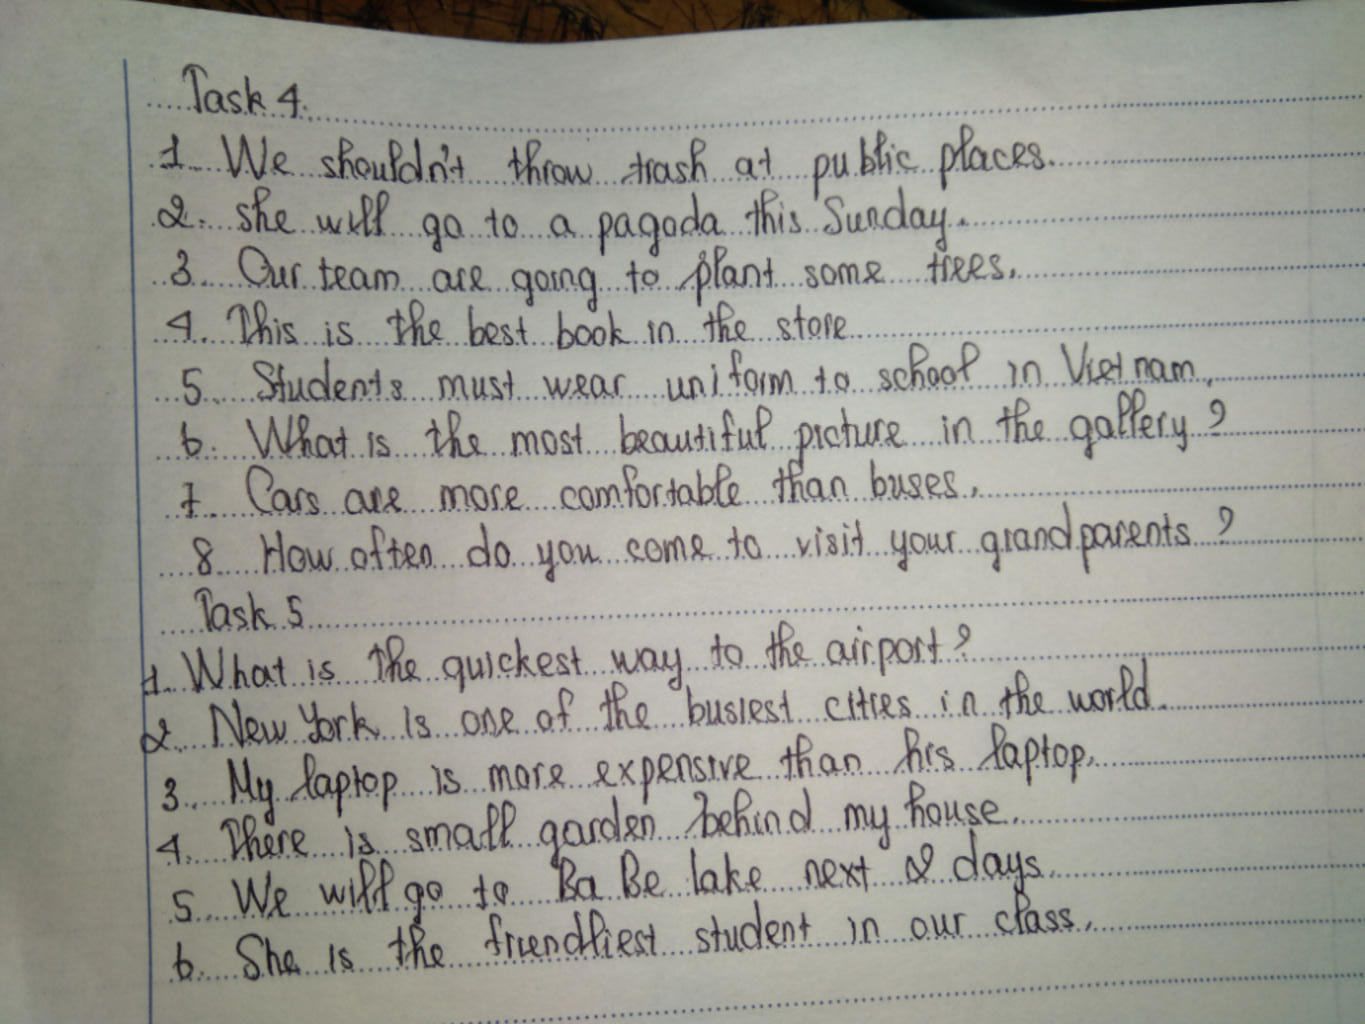 Task 4.
1. We shouldn't throw trash at public places.
2. she will go to a pagoda this Sunday.
3. Our team are going to plant some trees.
4. This is the best book in the store
5. Students must wear uniform to school in Viet nam.
6. What is the most beautiful picture in the gallery?
7. Cars are more comfortable than buses.
8. How often do you come to visit your grandparents?
Task 5
1. What is the quickest way to the airport?
2. New York is one of the busiest cities in the world.
3. My laptop is more expensive than his laptop.
4. There is small garden behind my house.
5. We will go to Ba Be lake next 2 days.
6. She is the friendliest student in our class.